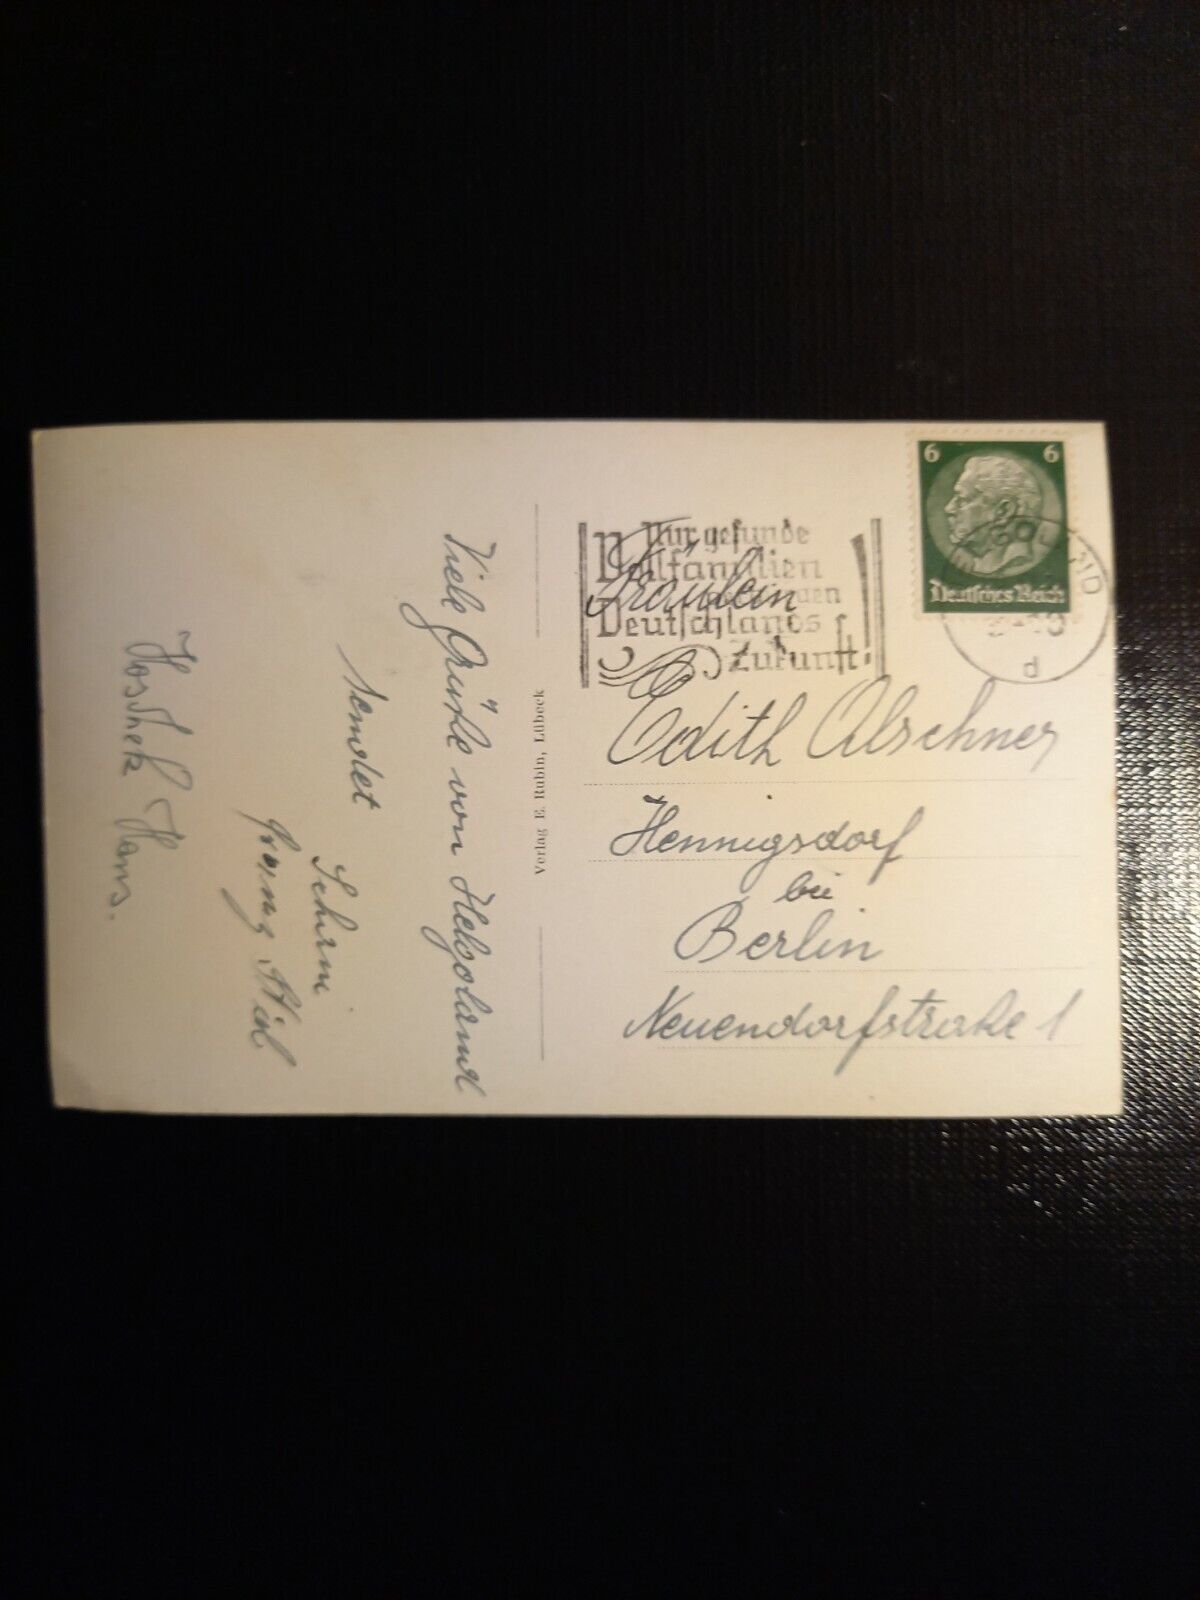 Viele Grüße von Helgoland
sendet
Hans.
Verlag E. Rubin, Lübeck
Nur gesunde
Vollfamilien
den
Deutschlands
Zukunft!
6 6
Deutsches Reich
HELGOLAND
d
Fräulein
Edith Alschner
Hennigsdorf
bei
Berlin
Neuendorfstraße 1